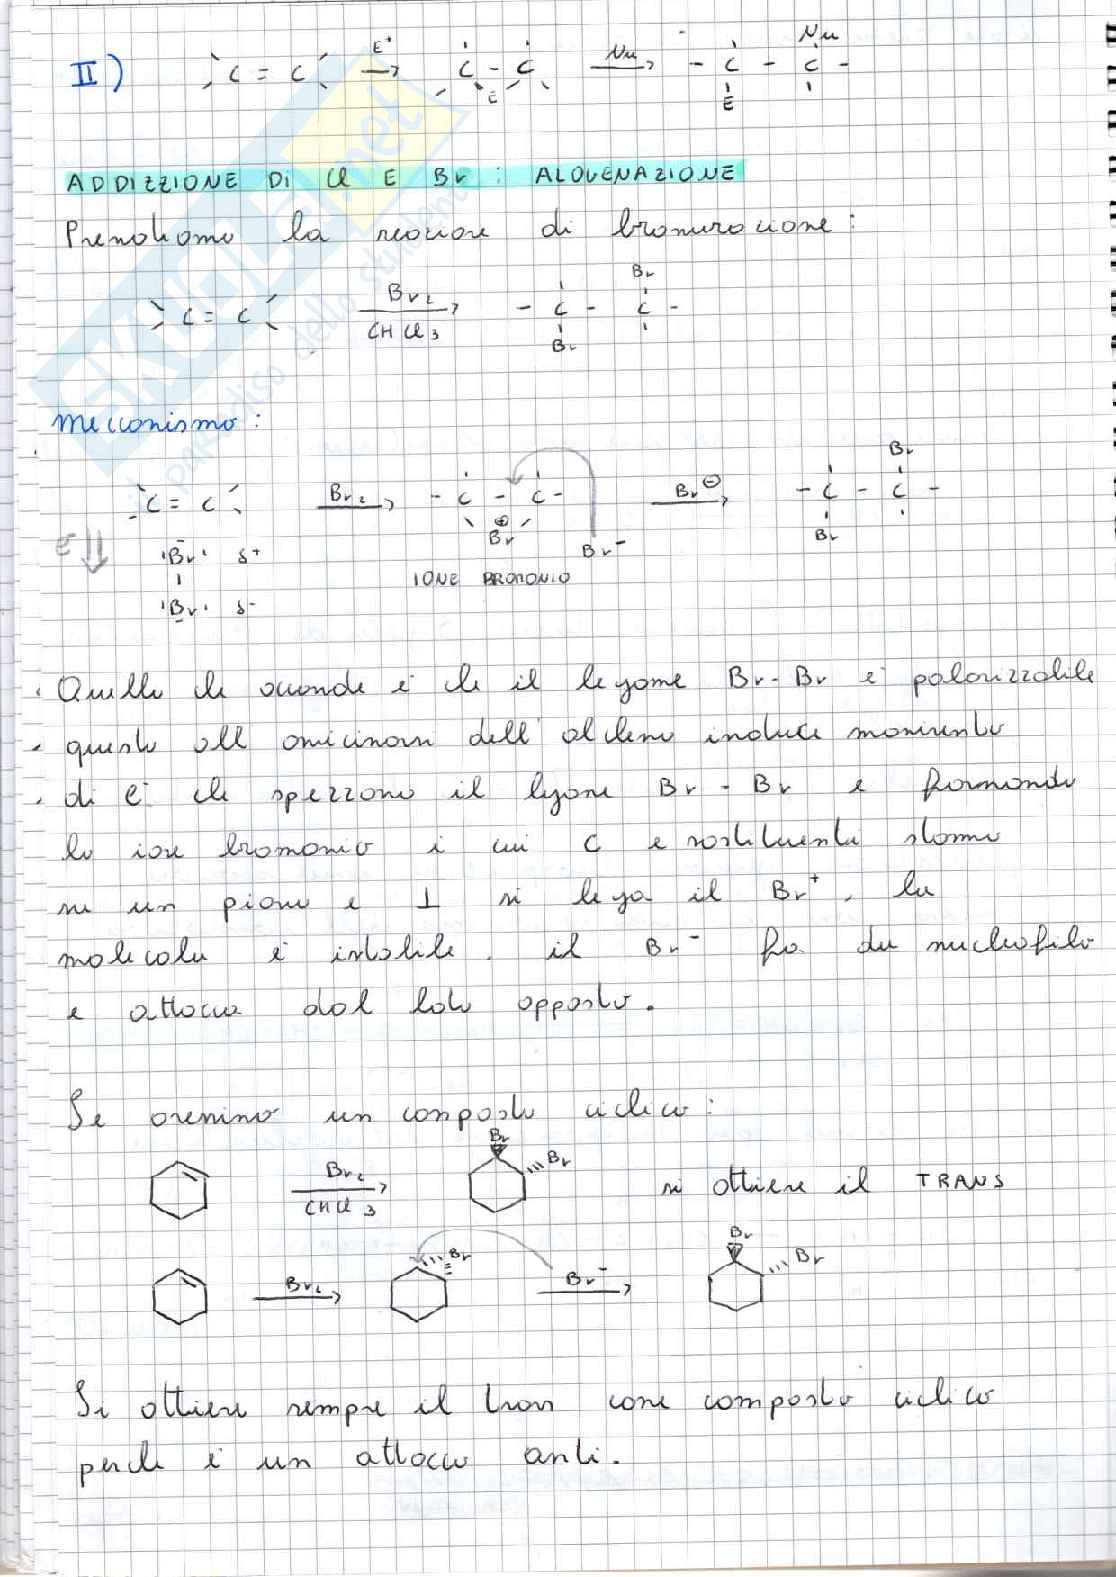 II) C = C E+ → C - C E Nu → - C - C - Nu E
ADDIZZIONE DI Cl E Br : ALOGENAZIONE
Prendiamo la reazione di bromurazione:
C = C Br2 CHCl3 → - C - C - Br Br
meccanismo:
C = C Br2 → - C - C - ⊕ Br Br- Br⊖ → - C - C - Br Br
e- Br δ+
IONE BROMONIO
Br δ-
Quello che accade è che il legame Br-Br è polarizzabile
questo all' avvicinarsi dell' alchene induce movimento
di e- che spezzano il legame Br - Br e formando
lo ione bromonio i cui C e sostituenti stanno
su un piano e ⊥ si lega il Br+. la
molecola è instabile. il Br- fa da nucleofilo
e attacca dal lato opposto.
Se avremmo un composto ciclico:
Br2 CHCl3 → Br Br si ottiene il TRANS
Br2 → Br Br- → Br Br
Si ottiene sempre il trans come composto ciclico
perché è un attacco anti.
SKUOLA.net
il paradiso dello studente